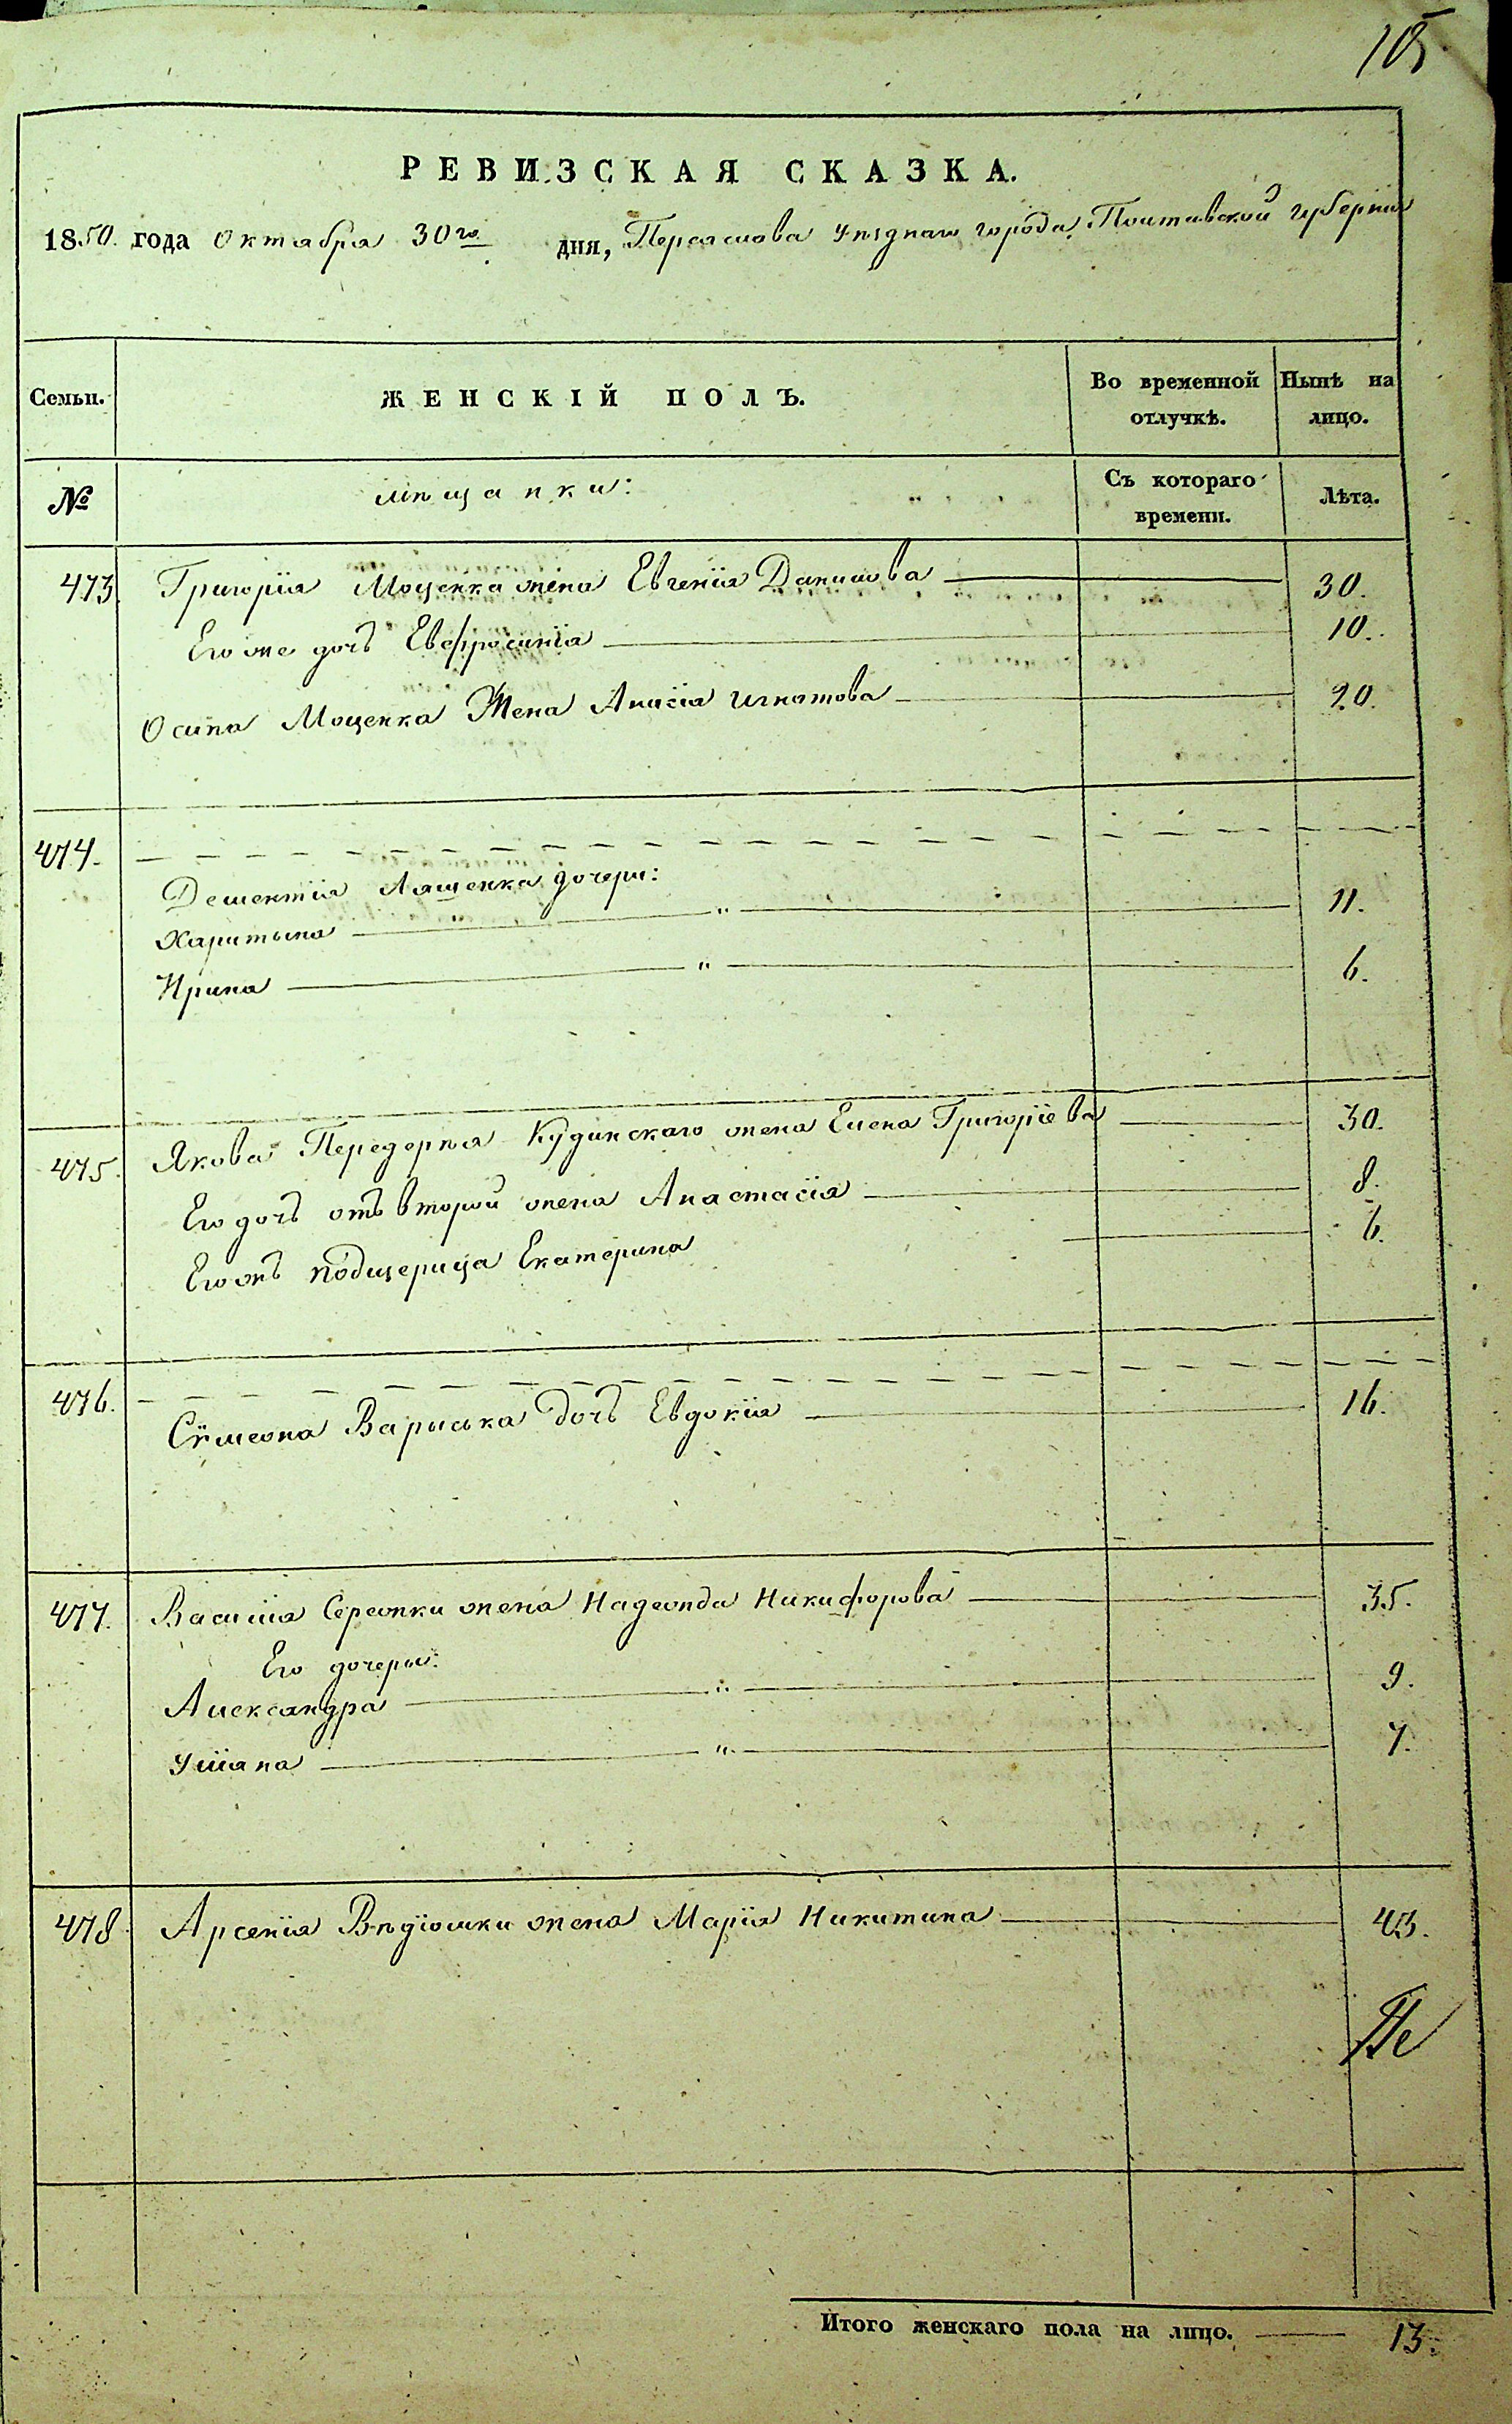 105
РЕВИЗСКАЯ СКАЗКА.
1850. года Октября 30го дня, Переяслова Уѣзднаго города, Полтавской губерніи
Семьи. ЖЕНСКІЙ ПОЛЪ. Во временной отлучкѣ. Нынѣ на лицо.
№ мѣщанки: Съ котораго времени. Лѣта.
473 Григорія Моценка жена Евгенія Данилова 30.
Его же дочь Евфросинія 10.
Осипа Моценка Жена Анисія Игнатова 20.
474.
Дементія Ляшенка дочери:
Харитына " " 11.
Ирина " 6.
475. Якова Передерѣя Кудинскаго жена Елена Григоріева 30.
Его дочь отъ второй жена Анастасія 8.
Его жъ подщерица Екатерина 6.
476.
Симеона Варылка дочь Евдокія 16.
477. Василія Сережки жена Надежда Никифорова 35.
Его дочеры:
Александра " 9.
Уліана " 7.
478 Арсенія Вѣдіошки жена Марія Никитина 43.
Итого женскаго пола на лицо. 13.